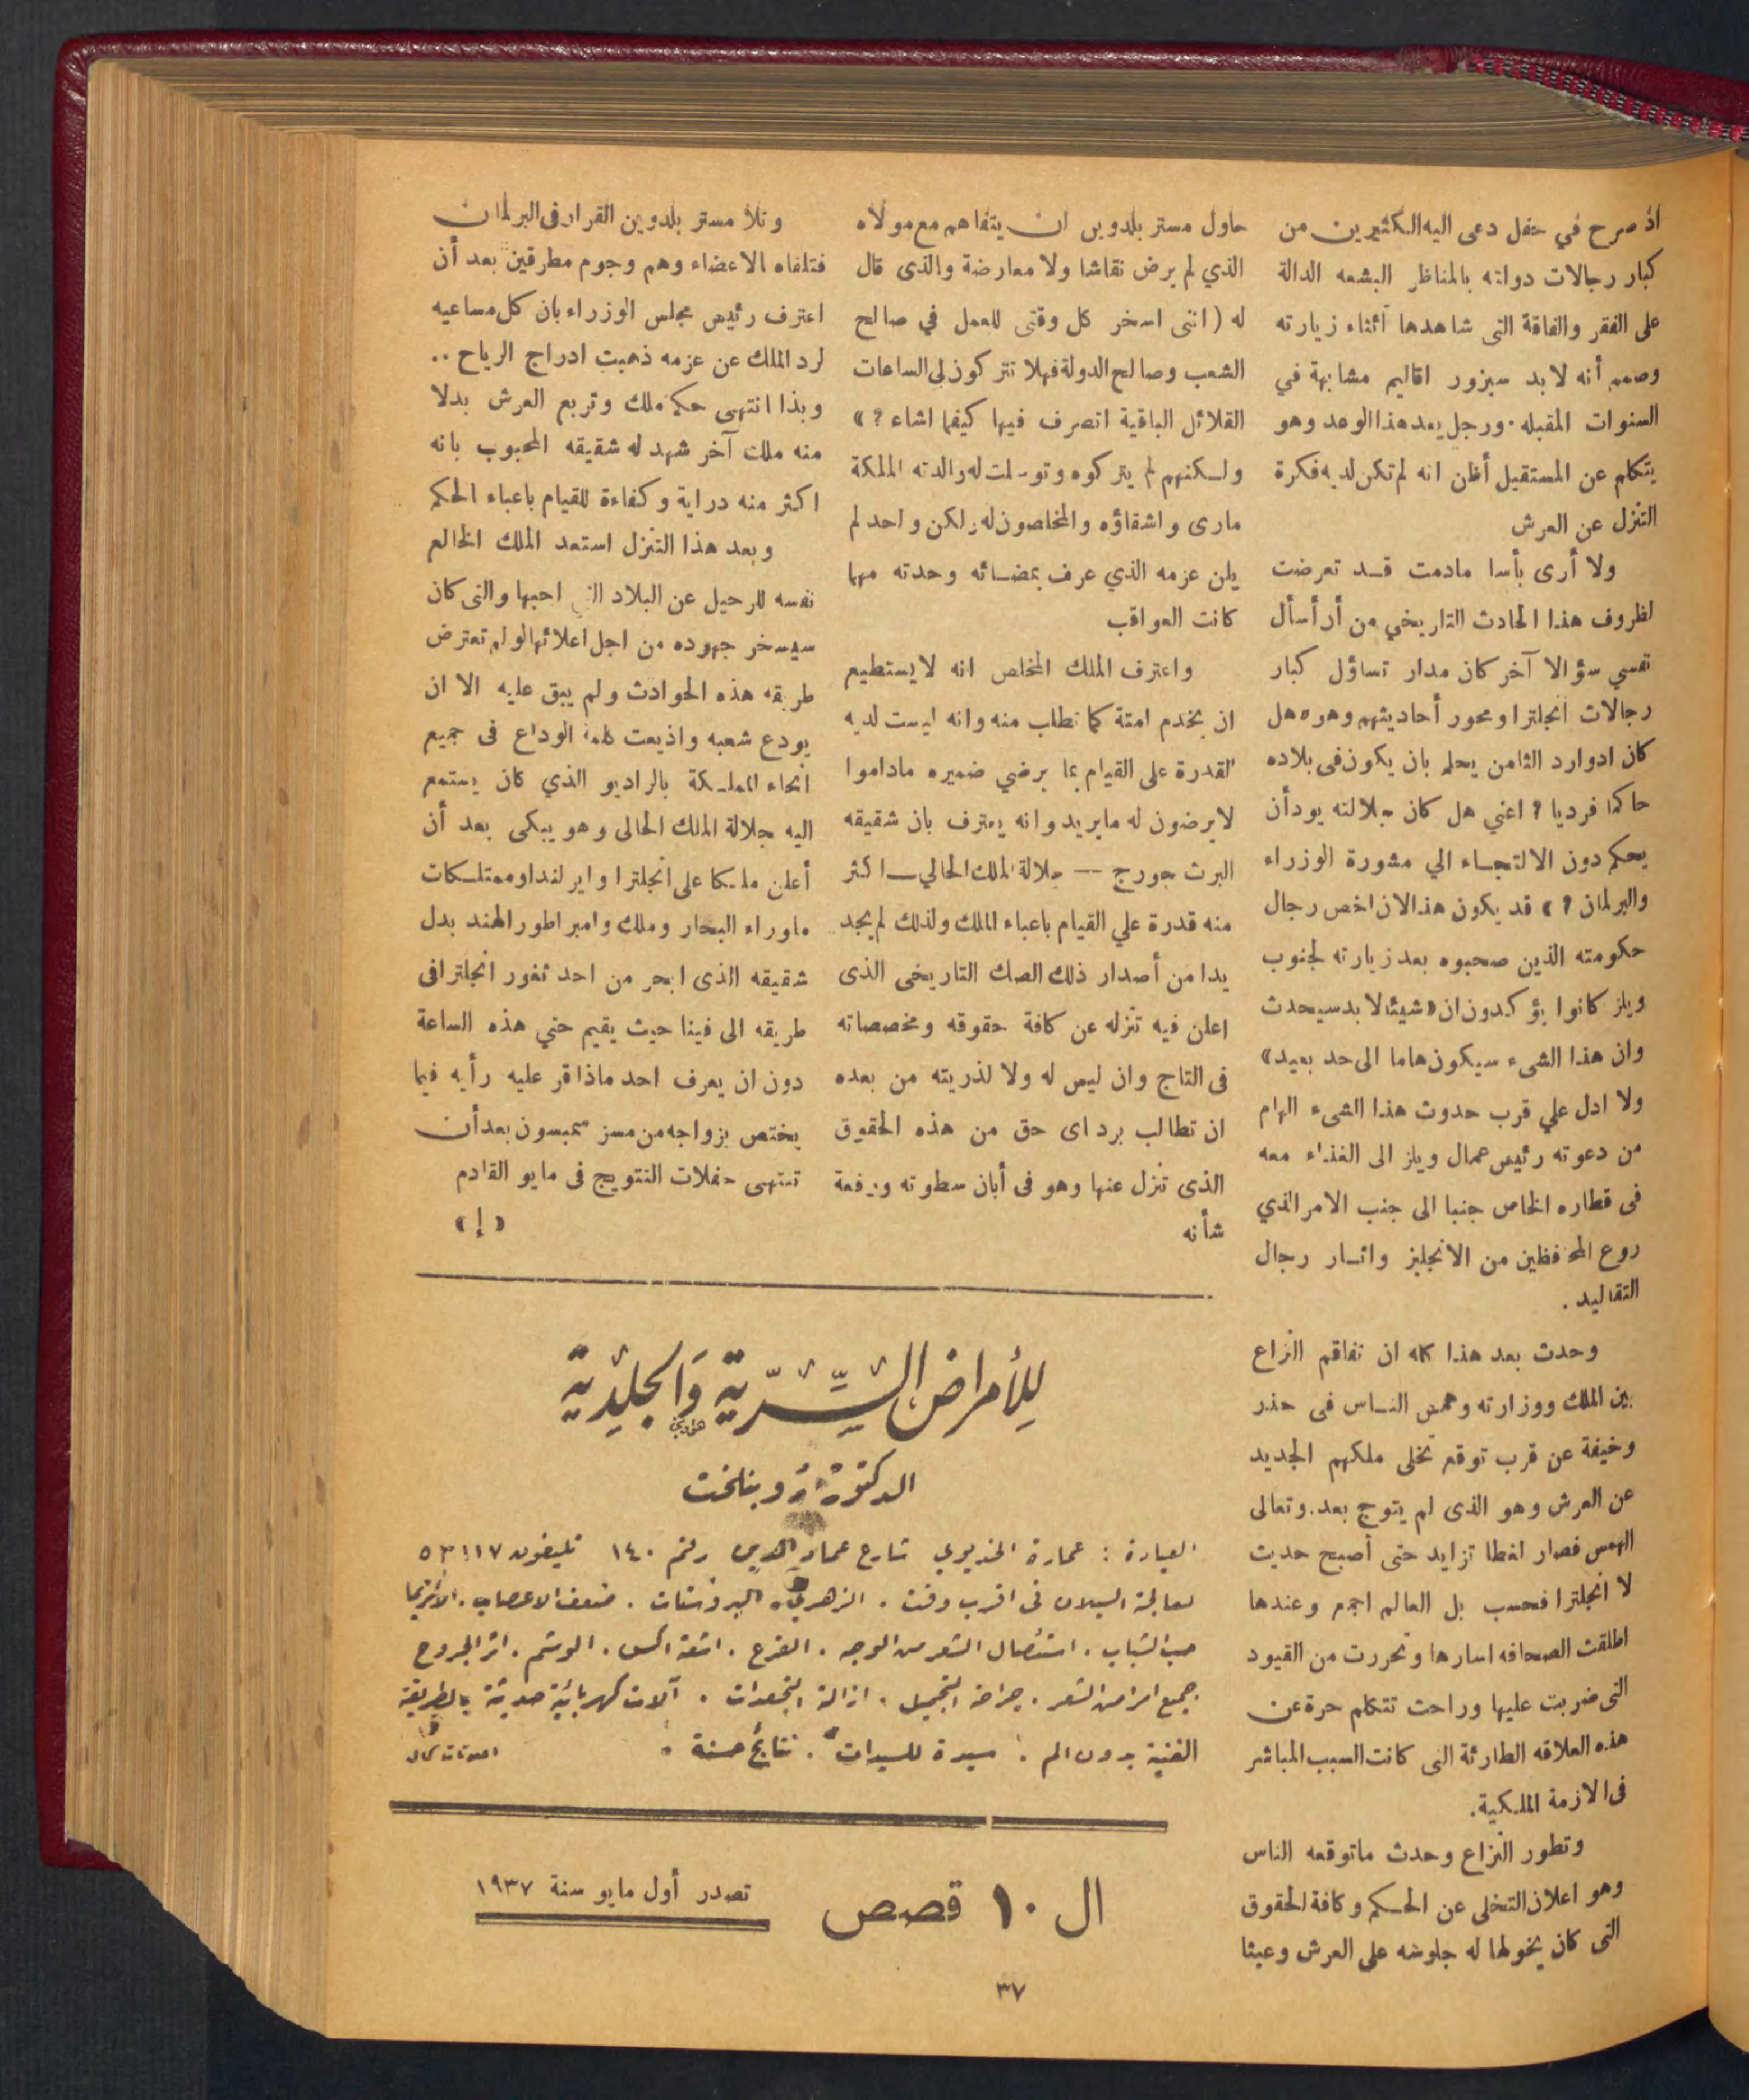 اذ صرح في حفل دعى اليه الكثيرين من
كبار رجالات دولته بالمناظر البشعه الدالة
على الفقر والفاقة التى شاهدها أثناء زيارته
وصمم أنه لابد سيزور اقاليم مشابهة في
السنوات المقبله . ورجل يعد هذا الوعد وهو
يتكلم عن المستقبل أظن انه لم تكن لديه فكرة
التنزل عن العرش
ولا أرى بأسا مادمت قد تعرضت
لظروف هذا الحادث التاريخي من أن أسأل
نفسي سؤالا آخر كان مدار تساؤل كبار
رجالات انجلترا ومحور أحاديثهم وهو « هل
كان ادوارد الثامن يحلم بان يكون فى بلاده
حاكما فرديا ؟ اعني هل كان جلالته يود أن
يحكم دون الالتجاء الي مشورة الوزراء
والبرلمان ؟ » قد يكون هذا لان اخص رجال
حكومته الذين صحبوه بعد زيارته لجنوب
ويلز كانوا يؤكدون ان « شيئا لا بد سيحدث
وان هذا الشىء سيكون هاما الى حد بعيد »
ولا ادل علي قرب حدوث هذا الشىء الهام
من دعوته رئيس عمال ويلز الى الغذاء معه
فى قطاره الخاص جنبا الى جنب الامر الذي
روع المحافظين من الانجليز واثار رجال
التقاليد .
وحدث بعد هذا كله ان تفاقم النزاع
بين الملك ووزارته وهمس الناس فى حذر
وخيفة عن قرب توقع تخلى ملكهم الجديد
عن العرش وهو الذى لم يتوج بعد . وتعالى
الهمس فصار لغطا تزايد حتى أصبح حديث
لا انجلترا فحسب بل العالم اجمع وعندها
اطلقت الصحافه اسارها وتحررت من القيود
التى ضربت عليها وراحت تتكلم حرة عن
هذه العلاقه الطارئة التى كانت السبب المباشر
فى الازمة الملكية .
وتطور النزاع وحدث ماتوقعه الناس
وهو اعلان التخلى عن الحكم وكافة الحقوق
التى كان يخولها له جلوسه على العرش وعبثا
حاول مستر بلدوين ان يتفاهم مع مولاه
الذي لم يرض نقاشا ولا معارضة والذى قال
له ( اننى اسخر كل وقتى للعمل في صالح
الشعب وصالح الدولة فهلا تتركون لى الساعات
القلائل الباقية اتصرف فيها كيفما اشاء ؟ »
ولكنهم لم يتركوه وتوسلت له والدته الملكة
مارى واشقاؤه والمخلصون له ولكن واحد لم
يلن عزمه الذي عرف بمضائه وحدته مهما
كانت العواقب
واعترف الملك المخلص انه لايستطيع
ان يخدم امتة كما تطلب منه وانه ليست لديه
القدرة على القيام بما يرضي ضميره ماداموا
لا يرضون له مايريد وانه يعترف بان شقيقه
البرت جورج — جلالة الملك الحالي — اكثر
منه قدرة علي القيام باعباء الملك ولذلك لم يجد
يدا من أصدار ذلك الصك التاريخى الذى
اعلن فيه تنزله عن كافة حقوقه ومخصصاته
فى التاج وان ليس له ولا لذريته من بعده
ان تطالب برد اى حق من هذه الحقوق
الذى تنزل عنها وهو فى أبان سطوته ورفعة
شأنه
وتلا مستر بلدوين القرار فى البرلمان
فتلقاه الاعضاء وهم وجوم مطرقين بعد أن
اعترف رئيس مجلس الوزراء بان كل مساعيه
لرد الملك عن عزمه ذهبت ادراج الرياح ..
وبذا انتهى حكم ملك وتربع العرش بدلا
منه ملك آخر شهد له شقيقه المحبوب بانه
اكثر منه دراية وكفاءة للقيام باعباء الحكم
وبعد هذا التنزل استعد الملك الخالع
نفسه للرحيل عن البلاد التى احبها والتى كان
سيسخر جهوده من اجل اعلائها لو لم تعترض
طريقه هذه الحوادث ولم يبق عليه الا ان
يودع شعبه واذيعت كلمة الوداع فى جميع
انحاء المملكة بالراديو الذي كان يستمع
اليه جلالة الملك الحالى وهو يبكى بعد أن
أعلن ملكا على انجلترا وايرلندا وممتلكات
ماوراء البحار وملك وامبراطور الهند بدل
شقيقه الذى ابحر من احد ثغور انجلترا فى
طريقه الى فينا حيث يقيم حتي هذه الساعة
دون ان يعرف احد ماذا قر عليه رأيه فيما
يختص بزواجه من مسز سمبسون بعد أن
تنتهى حفلات التتويج فى مايو القادم
« إ »
للأمراض السِّرّية وَالجلديّة
الدكتور دوبناخت
العيادة : عمارة الخديوي شارع عماد الدين رقم ١٤٠ تليفون ٥٣١١٧
لمعالجة السيلان فى اقرب وقت . الزهري . البروستات . ضعف الاعصاب . الأكزيما
حب الشباب . استئصال الشعر من الوجه . القرع . اشعة اكس . الوشم . اثر الجروح
جميع امراض الشعر . جراحة التجميل . ازالة التجعدات . آلات كهربائية حديثة بالطريقة
الفنية بدون الم . سيدة للسيدات . نتائج حسنة .
ال ١٠ قصص
تصدر أول مايو سنة ١٩٣٧
٣٧